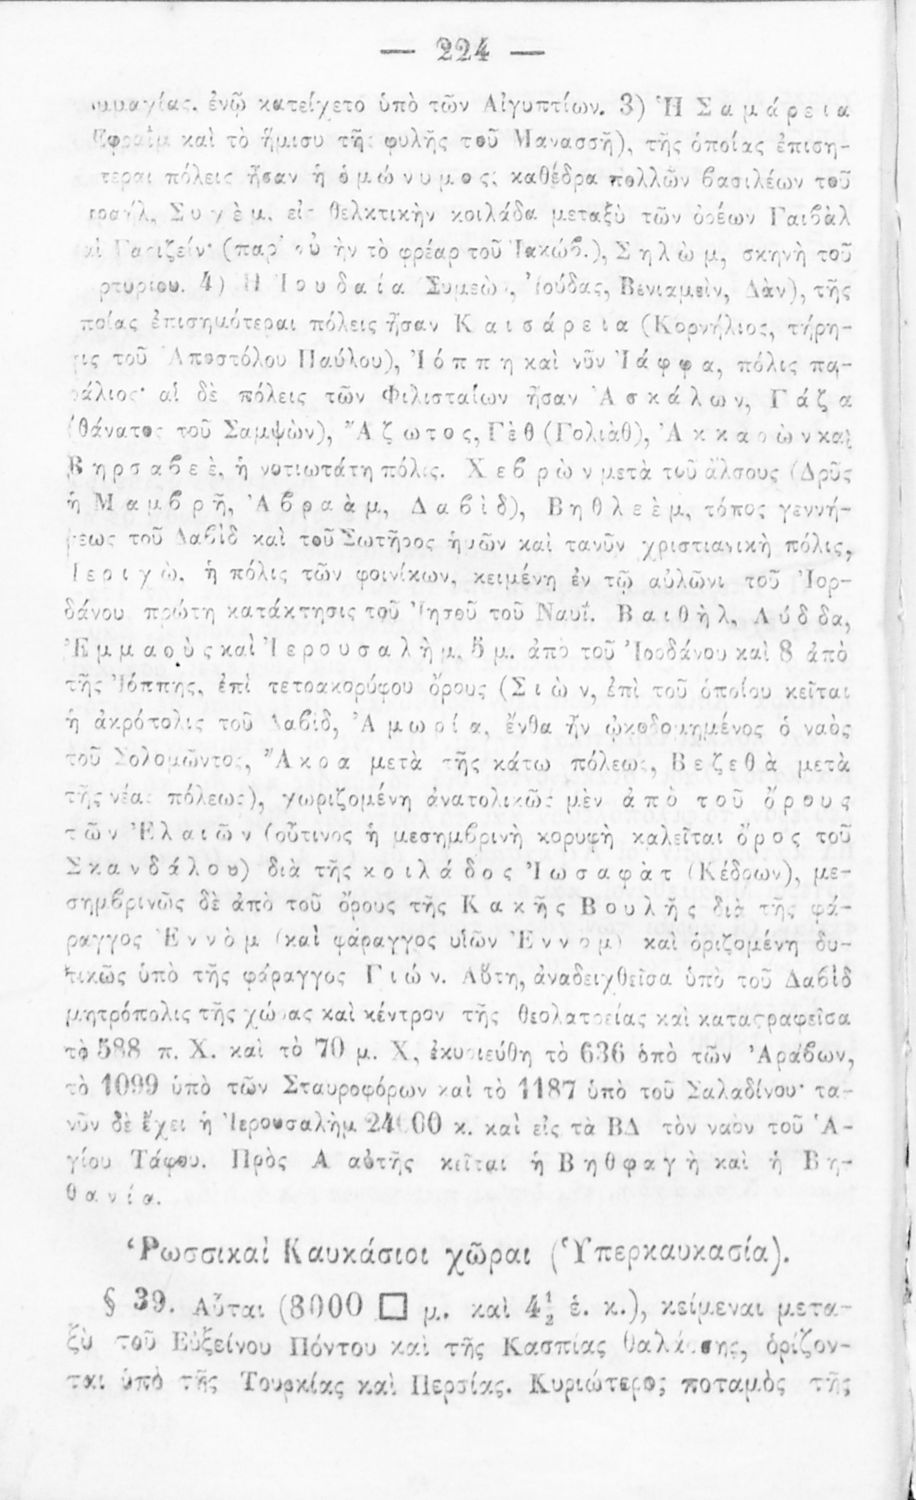 — 224 —
ἐνῷ κατείχετο ὑπὸ τῶν Αἰγυπτίων. 3) Ἡ Σαμάρεια
καὶ τὸ ἥμισυ τῆς φυλῆς τοῦ Μανασσῆ), τῆς ὁποίας ἐπιση-
πόλεις ἦσαν ἡ ὁμώνυμος, καθέδρα πολλῶν βασιλέων τοῦ
Συχὲμ, εἰς θελκτικὴν κοιλάδα μεταξὺ τῶν ὀρέων Γαιβὰλ
Γαριζείν· (παρ' οὗ ἦν τὸ φρέαρ τοῦ Ἰακώβ.), Σηλὼμ, σκηνὴ τοῦ
4) Ἡ Ἰουδαία Συμεὼν, Ἰούδας, Βενιαμεὶν, Δὰν), τῆς
ἐπισημότεραι πόλεις ἦσαν Καισάρεια (Κορνήλιος, τήρη-
τοῦ Ἀποστόλου Παύλου), Ἰόππη καὶ νῦν Ἰάφφα, πόλις πα-
ράλιος· αἱ δὲ πόλεις τῶν Φιλισταίων ἦσαν Ἀσκάλων, Γάζα
(θάνατος τοῦ Σαμψὼν), Ἄζωτος, Γὲθ (Γολιὰθ), Ἀκκαρὼν καὶ
Βηρσαβεὲ, ἡ νοτιωτάτη πόλις. Χεβρὼν μετὰ τοῦ ἄλσους (Δρῦς
ἡ Μαμβρῆ, Ἀβραὰμ, Δαβὶδ), Βηθλεὲμ, τόπος γεννή-
σεως τοῦ Δαβὶδ καὶ τοῦ Σωτῆρος ἡμῶν καὶ τανῦν χριστιανικὴ πόλις,
Ἱεριχὼ, ἡ πόλις τῶν φοινίκων, κειμένη ἐν τῷ αὐλῶνι τοῦ Ἰορ-
δάνου πρώτη κατάκτησις τοῦ Ἰησοῦ τοῦ Ναυΐ. Βαιθὴλ, Λύδδα,
Ἐμμαοὺς καὶ Ἱερουσαλὴμ, 5 μ. ἀπὸ τοῦ Ἰορδάνου καὶ 8 ἀπὸ
τῆς Ἰόππης, ἐπὶ τετρακορύφου ὄρους (Σιὼν, ἐπὶ τοῦ ὁποίου κεῖται
ἡ ἀκρόπολις τοῦ Δαβὶδ, Ἀμωρία, ἔνθα ἦν ᾠκοδομημένος ὁ ναὸς
τοῦ Σολομῶντος, Ἄκρα μετὰ τῆς κάτω πόλεως, Βεζεθὰ μετὰ
τῆς νέας πόλεως), χωριζομένη ἀνατολικῶς μὲν ἀπὸ τοῦ ὄρους
τῶν Ἐλαιῶν (οὗτινος ἡ μεσημβρινὴ κορυφὴ καλεῖται ὄρος τοῦ
Σκανδάλου) διὰ τῆς κοιλάδος Ἰωσαφὰτ (Κέδρων), με-
σημβρινῶς δὲ ἀπὸ τοῦ ὄρους τῆς Κακῆς Βουλῆς διὰ τῆς φά-
ραγγος Ἐννὸμ (καὶ φάραγγος υἱῶν Ἐννομ) καὶ ὁριζομένη δυ-
τικῶς ὑπὸ τῆς φάραγγος Γιών. Αὕτη, ἀναδειχθεῖσα ὑπὸ τοῦ Δαβὶδ
μητρόπολις τῆς χώρας καὶ κέντρον τῆς θεολατρείας καὶ καταστραφεῖσα
τὸ 588 π. Χ. καὶ τὸ 70 μ. Χ, ἐκυριεύθη τὸ 636 ὑπὸ τῶν Ἀράβων,
τὸ 1099 ὑπὸ τῶν Σταυροφόρων καὶ τὸ 1187 ὑπὸ τοῦ Σαλαδίνου· τα-
νῦν δὲ ἔχει ἡ Ἱερουσαλὴμ κ. καὶ εἰς τὰ ΒΔ τὸν ναὸν τοῦ Ἁ-
γίου Τάφου. Πρὸς Α αὐτῆς κεῖται ἡ Βηθφαγὴ καὶ ἡ Βη-
θανία.
Ῥωσσικαὶ Καυκάσιοι χῶραι (Ὑπερκαυκασία).
§ 39. Αὗται (8000 □ μ. καὶ 4½ ἑ. κ.), κείμεναι μετα-
ξὺ τοῦ Εὐξείνου Πόντου καὶ τῆς Κασπίας θαλάσσης, ὁρίζον-
ται ὑπὸ τῆς Τουρκίας καὶ Περσίας. Κυριώτερος ποταμὸς τῆς